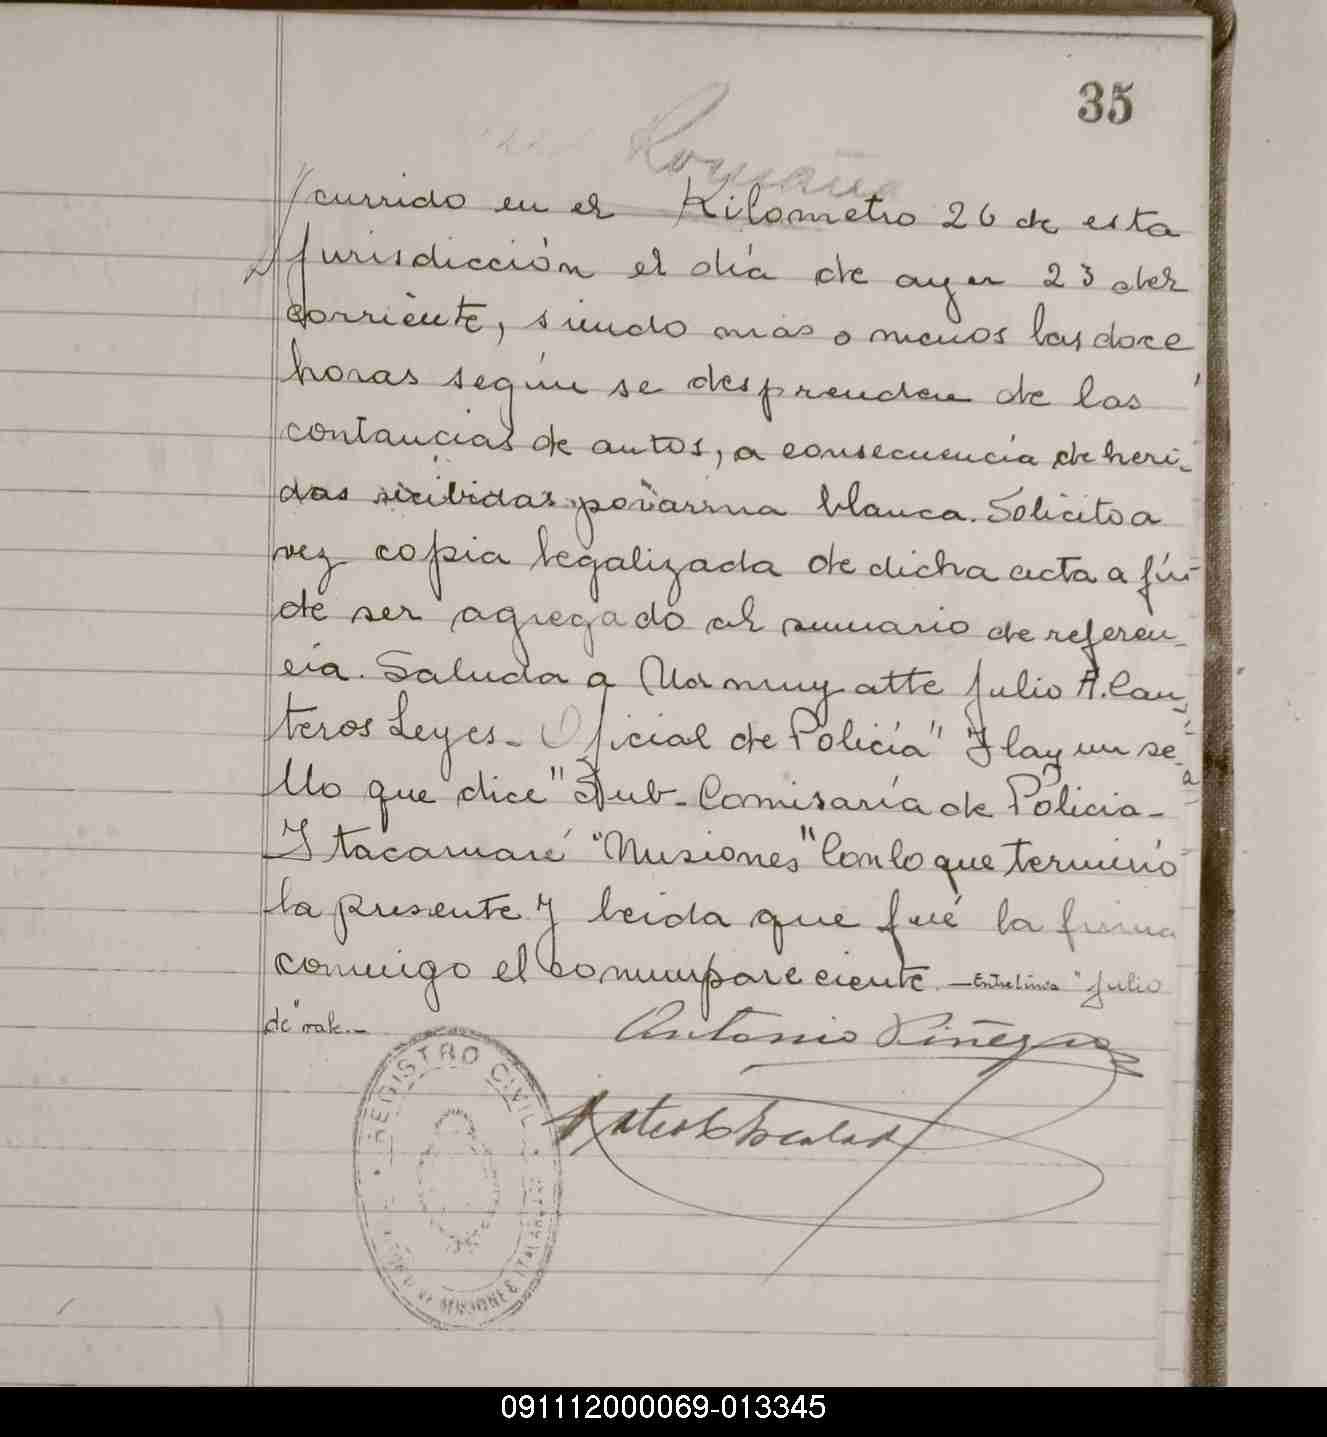 35
Romaña
currido en el Kilometro 26 de esta
jurisdicción el día de ayer 23 del
corriente, siendo más o menos las doce
horas según se desprenden de las
contancias de autos, a consecuencia de heri-
das recibidas por arma blanca. Solicito a
vez copia legalizada de dicha acta a fin
de ser agregado al sumario de referen-
cia. Saluda a Ud muy atte Julio A. Can-
teros Leyes - Oficial de Policía" Hay un se-
llo que dice "Sub-Comisaría de Policia-
Itacaruaré "Misiones" Con lo que terminó
la presente y leida que fué la firma
conmigo el commpareciente. - Entrelinea "Julio
de" vale.-
Antonio Piñeyro
REGISTRO CIVIL
MISIONES ITACARUARE
091112000069-013345